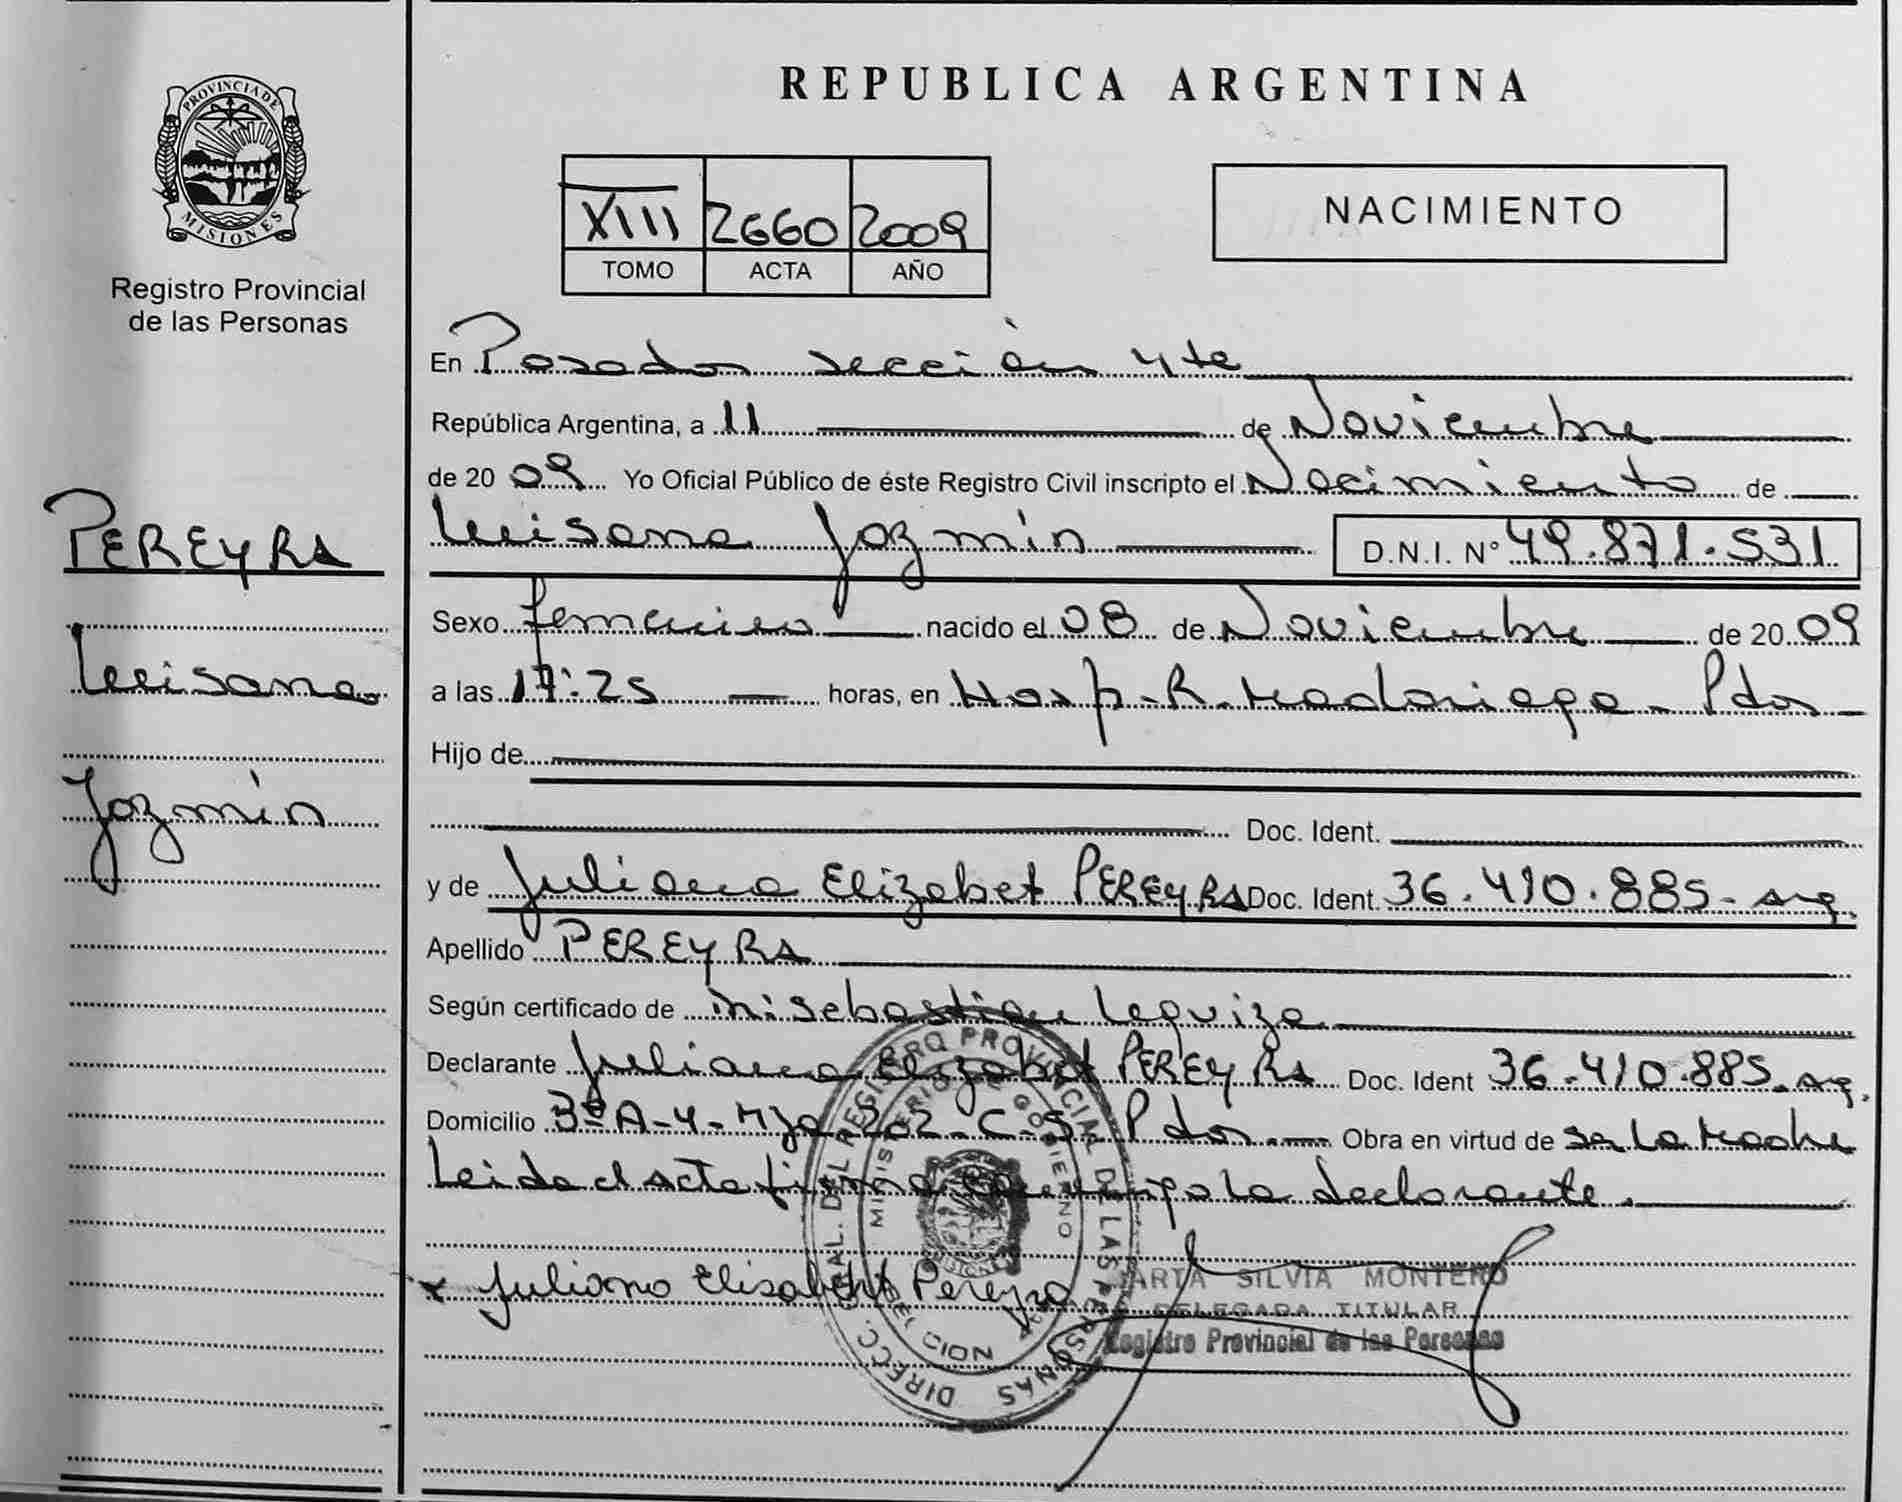 PROVINCIA DE
MISIONES
Registro Provincial
de las Personas
PEREYRA
Luisana
Jazmín
REPUBLICA ARGENTINA
XIII 2660 2009
TOMO ACTA AÑO
NACIMIENTO
En Posadas sección 4ta
República Argentina, a 11 de Noviembre
de 2009 Yo Oficial Público de éste Registro Civil inscripto el Nacimiento de
Luisana Jazmín D.N.I. N° 49.871.531
Sexo femenino nacido el 08 de Noviembre de 2009
a las 17:25 horas, en Hosp. R. Madariaga - Pdas
Hijo de
Doc. Ident.
y de Juliana Elizabet PEREYRA Doc. Ident. 36.410.885- arg.
Apellido PEREYRA
Según certificado de Sebastian Leguiza
Declarante Juliana Elizabet PEREYRA Doc. Ident 36.410.885- arg.
Domicilio 3º A-4- 202- C-S. Pdas. Obra en virtud de ser La Madre
Leida el acta firma la declarante.
x Juliana Elisabeht Pereyra
MARTA SILVIA MONTERO
DELEGADA TITULAR
Registro Provincial de las Personas
DIRECC. GRAL. DEL REGISTRO PROVINCIAL DE LAS PERSONAS
MINISTERIO DE GOBIERNO